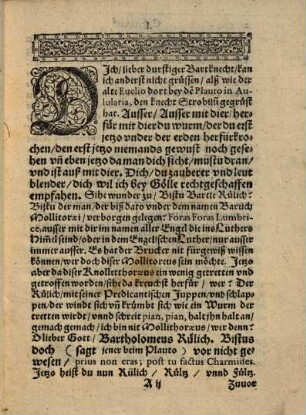 1.
DIch/ lieber durstiger Bartknecht/ kan
ich anderst nicht grüssen/ alß wie der
alte Euclio dort bey dẽ Plauto in Au-
lularia, den knecht Strobilũ gegrüst
hat. Ausser/ Ausser mit dier/ her-
für mit dier du wurm/ der du erst
jetzo vnder der erden herfürkro-
chen/ den erst jetzo niemands gewust noch gese-
hen vñ eben jetzo da man dich sicht/ mustu dran/
vnd ist auß mit dier. Dich/ du zauberer vnd leut
blender/ dich wil ich bey Gölle rechtgeschaffen
empfahen. Sihe wunder zu/ Bistu Bartle Rülich?
Bistu der man/ der biß dato vnder dem namen Baruch
Mollitoræi/ verborgin gelegen? Foras Foras Lumbri-
ce, ausser mit dir im namen aller Engel die ins Luthers
Him̃el sind/ oder in dem Engelischen Luther/ nur ausser
immer ausser. Es hat der Brucker nit fürgewiß wissen
können/ wer doch diser Mollitoræus sein möchte. Jetzo
aber da diser Knollethoræus ein wenig getretten vnd
getroffen worden/ sihe da kreucht her für/ wer? Der
Rülich/ mit seiner Predicantischen Juppen/ vnd schlap-
pen/ der windt sich vñ krümbt sich/ wie ein Wurm der
tretten wirdt/ vnnd schreit pian, pian, halt/ hn halt an/
gemach gemach/ ich bin nit Mollithoræus/ wer denn?
O lieber Gott/ Bartholomeus Rülich. Bistus
doch (sagt jener beim Plauto) vor nicht ge-
wesen/ prius non eras; post tu factus Charmides.
Jetzo heist du nun Rülich/ Rültz/ vnnd Fültz.
A ij
Zuuor